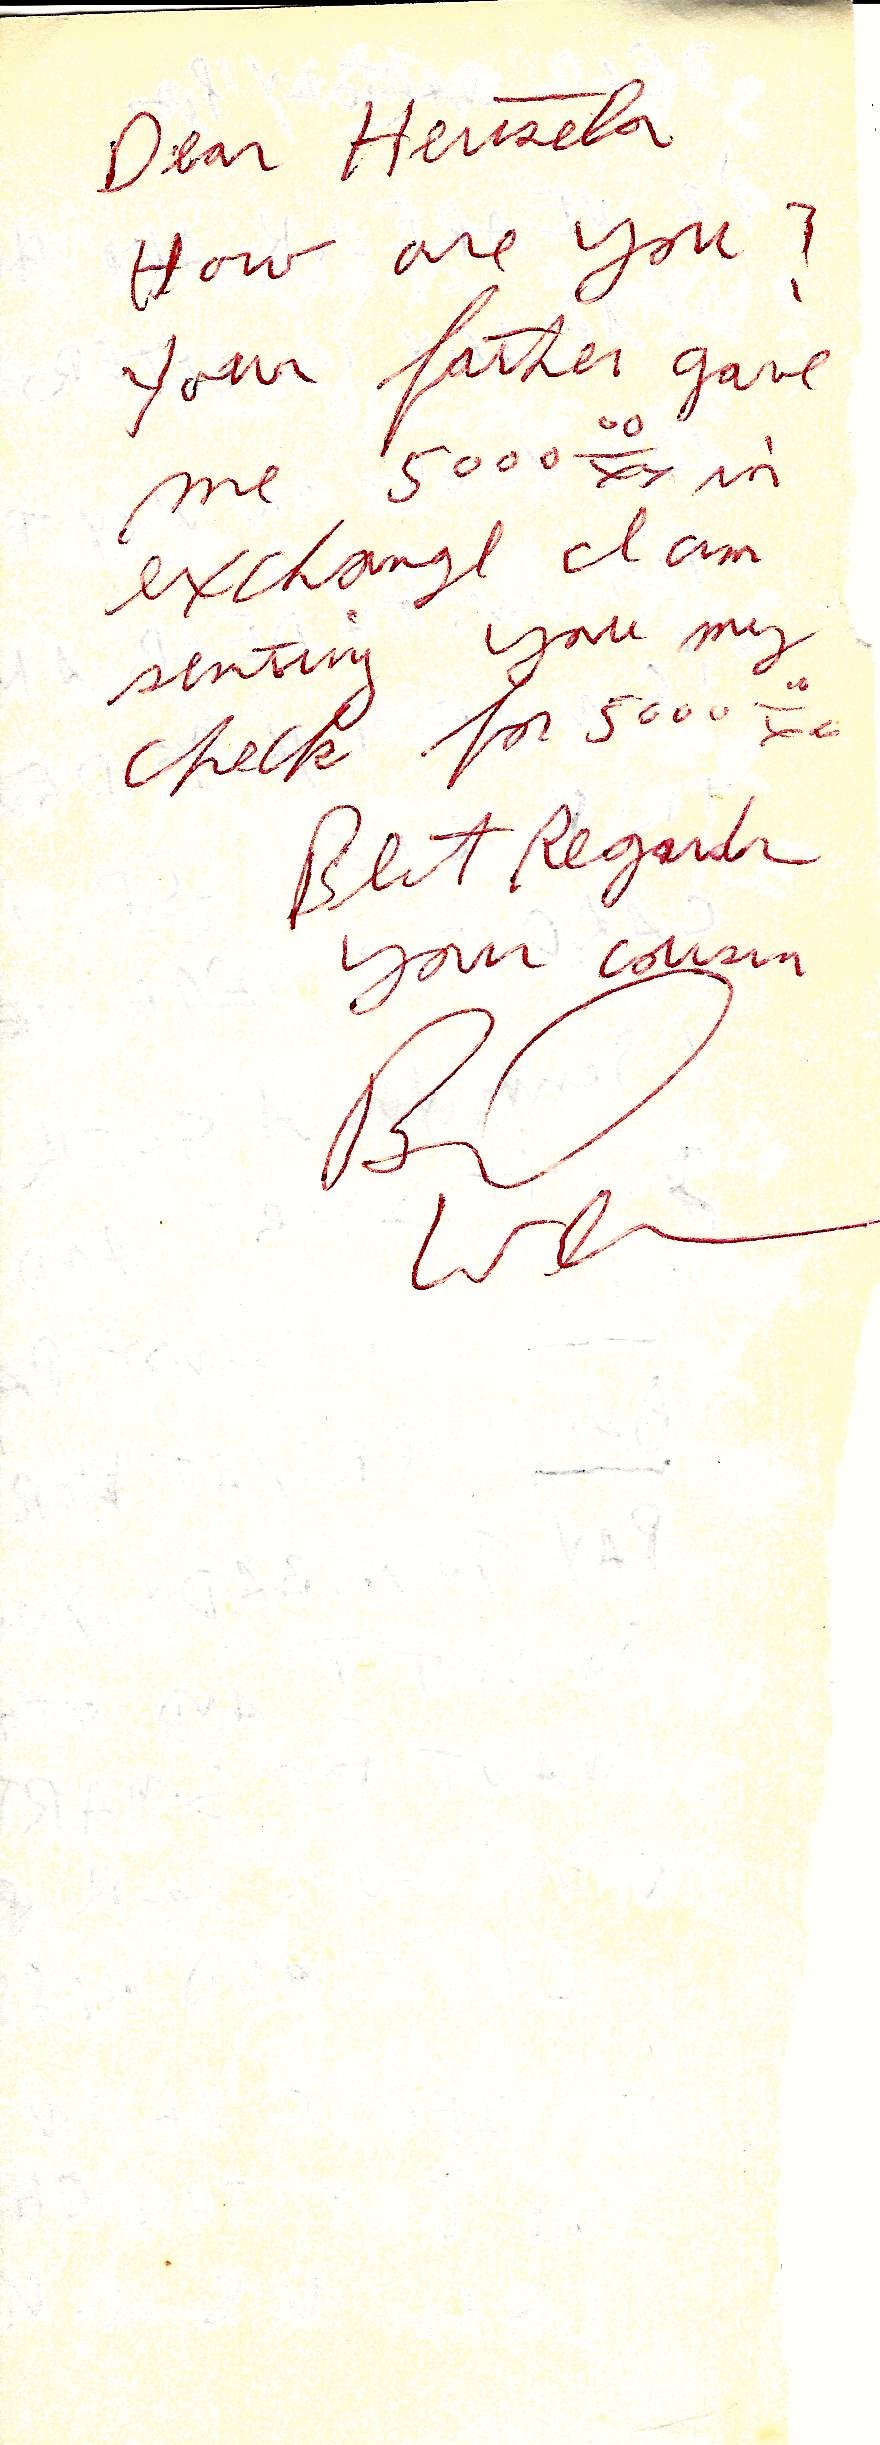 Dear
How are you?
Your father gave
me 5000 00/xx in
exchange I am
senting you my
check for 5000 00/xx
Best Regards
your cousin